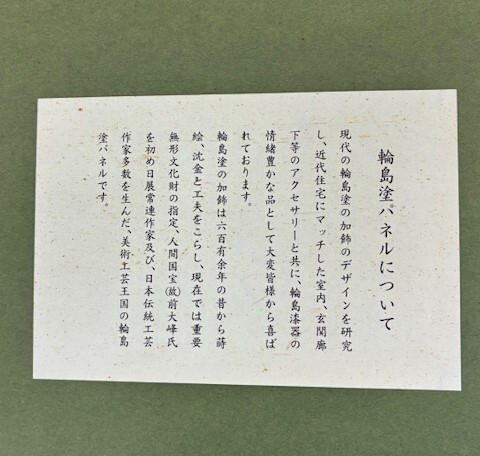 輪島塗パネルについて
現代の輪島塗の加飾のデザインを研究
し、近代住宅にマッチした室内、玄関廊
下等のアクセサリーと共に、輪島漆器の
情緒豊かな品として大変皆様から喜ば
れております。
輪島塗の加飾は六百有余年の昔から蒔
絵、沈金と工夫をこらし、現在では重要
無形文化財の指定、人間国宝(故)前大峰氏
を初め日展常連作家及び、日本伝統工芸
作家多数を生んだ、美術工芸王国の輪島
塗パネルです。